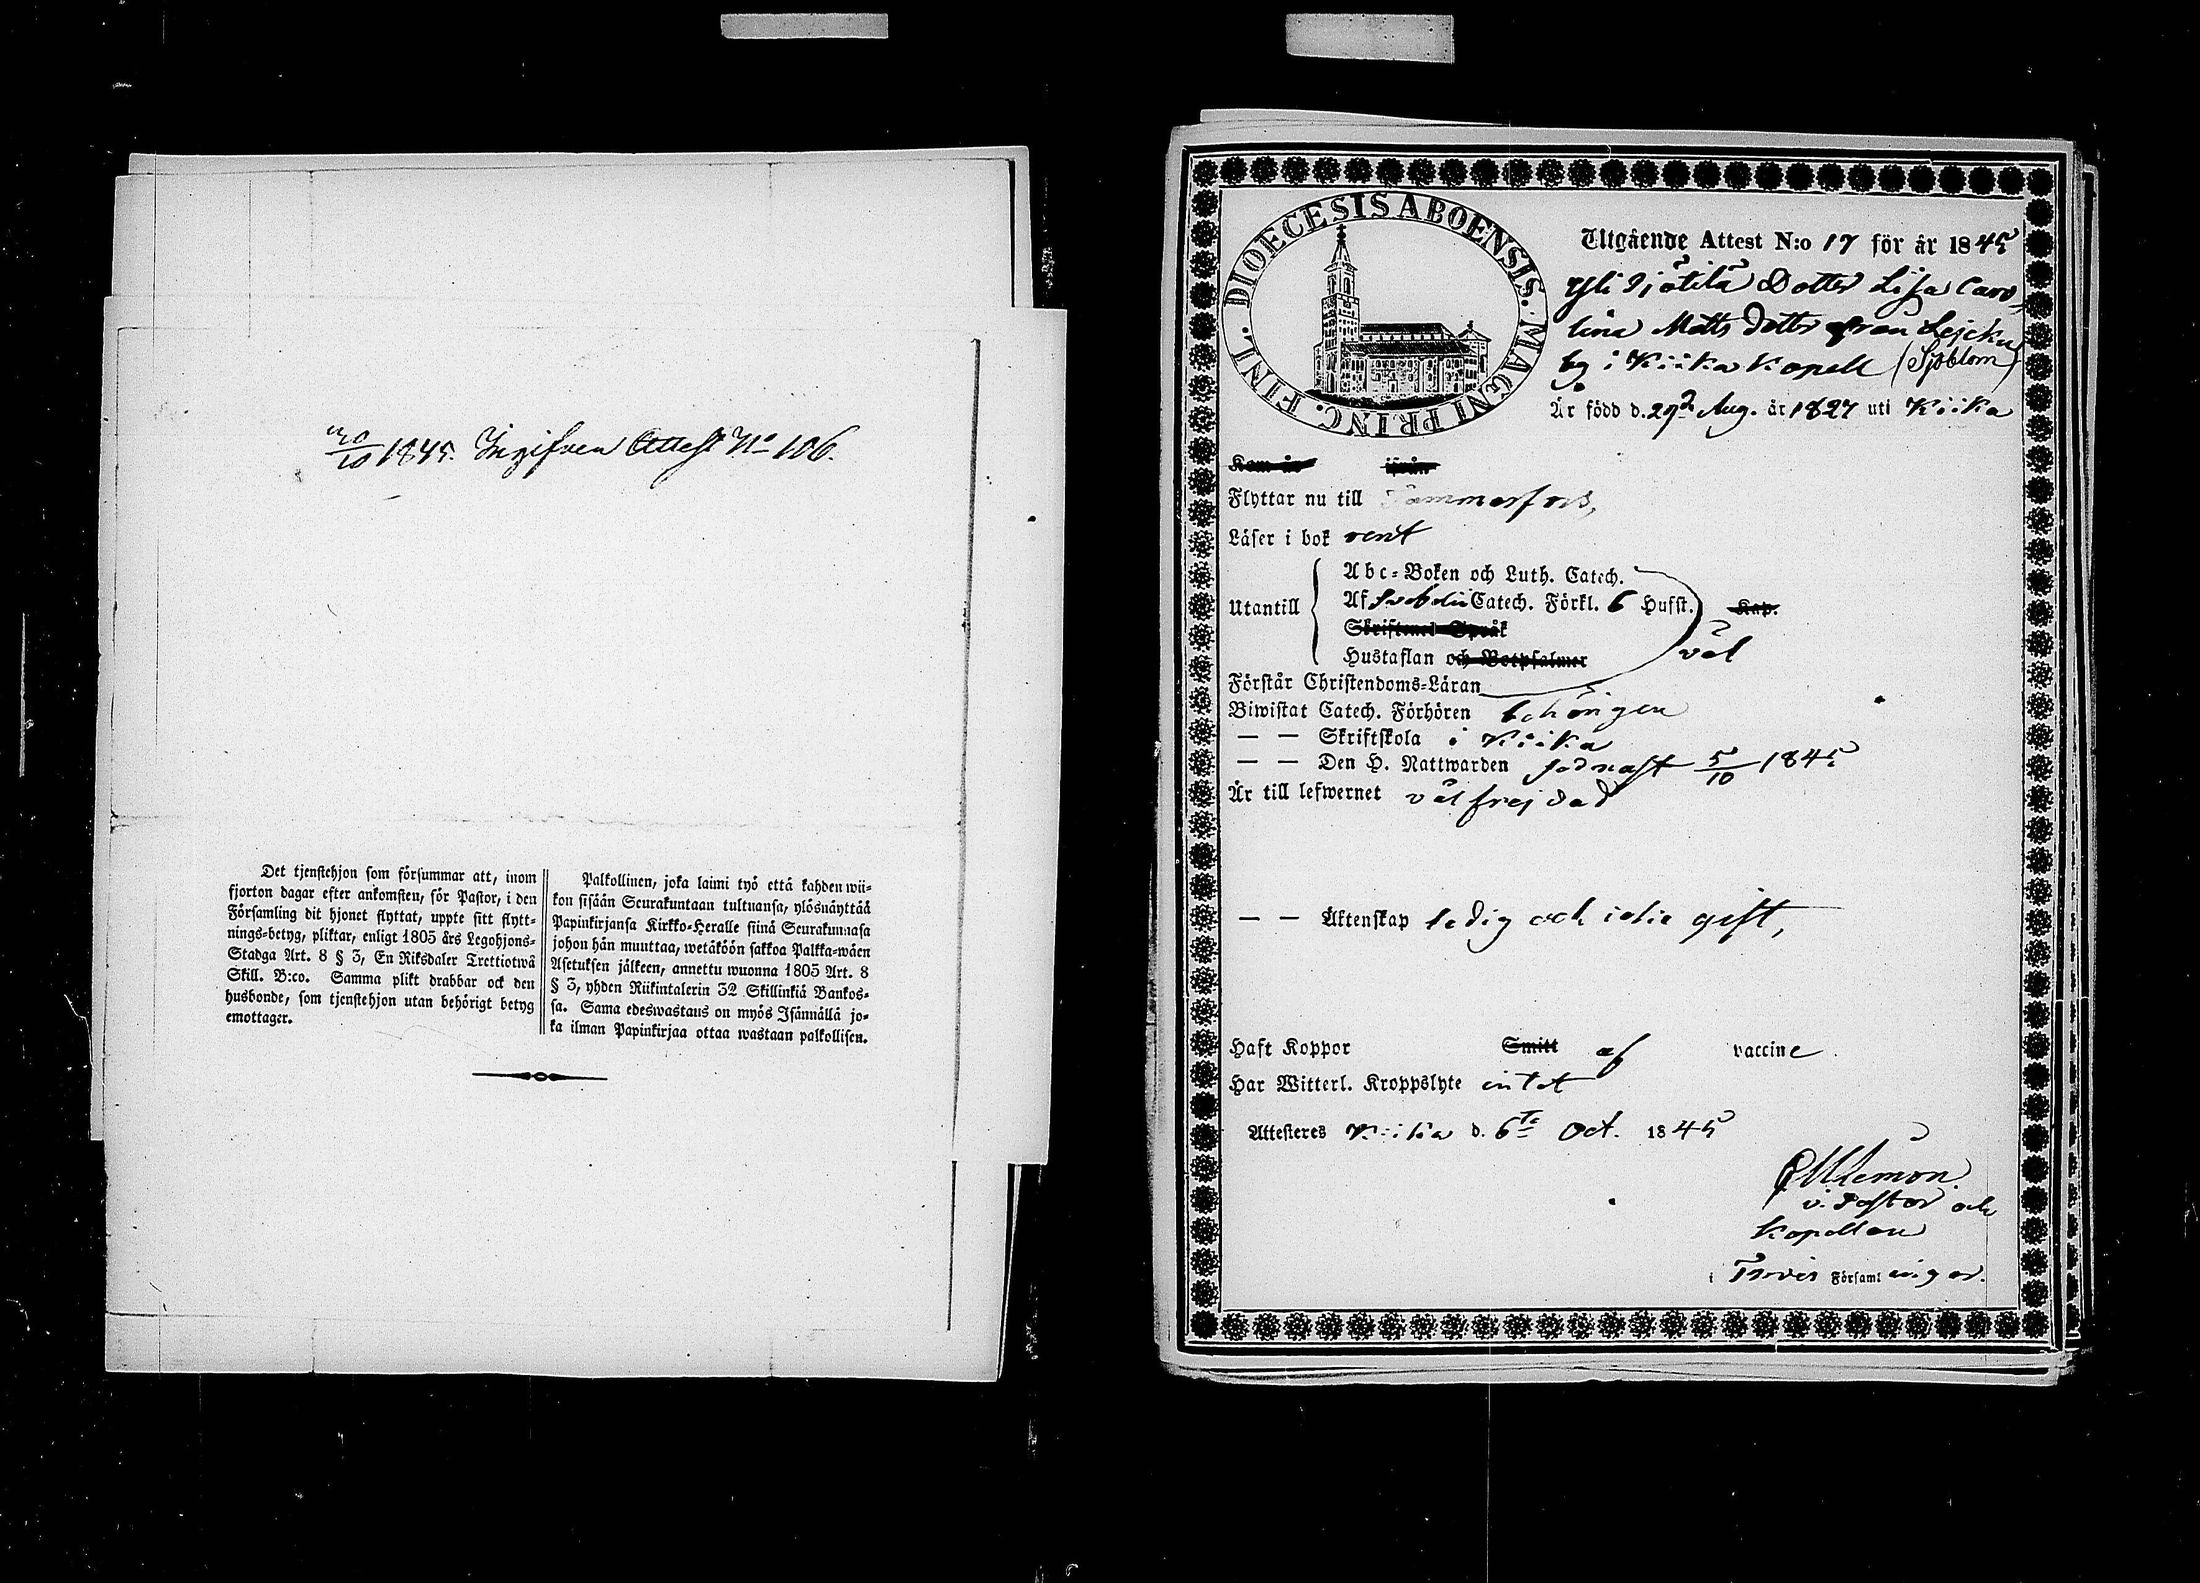 20/10 1845. Ingifven Attest No 106.
Det tjenstehjon som försummar att, inom
fjorton dagar efter ankomsten, för Pastor, i den
Församling dit hjonet flyttat, uppte sitt flytt-
nings-betyg, pliktar, enligt 1805 års Legohjons-
Stadga Art. 8 § 3, En Riksdaler Trettiotwå
Skill. B:co. Samma plikt drabbar ock den
husbonde, som tjenstehjon utan behörigt betyg
emottager.
Palkollinen, joka laimi työ että kahden wii-
kon sisään Seurakuntaan tultuansa, ylösnäyttää
Papinkirjansa Kirkko-Heralle siinä Seurakunnasa
johon hän muuttaa, wetäköön sakkoa Palkka-wäen
Asetuksen jälkeen, annettu wuonna 1805 Art. 8
§ 3, yhden Riikintalerin 32 Skillinkiä Bankos-
sa. Sama edeswastaus on myös Isännällä jo-
ka ilman Papinkirjaa ottaa wastaan palkollisen.
DIOECESIS ABOENSIS. MAGNI PRINC. FINL.
Utgående Attest N:o 17 för år 1845
Dotter Lisa Caro-
lina Matts Dotter från
by i Kiika Kapell (Sjöblom)
Är född d. 29 Aug. år 1827 uti Kiika
Kom år ifrån
Flyttar nu till Tammerfors,
Läser i bok rent
Utantill
Abc-Boken och Luth. Catech.
Af Svebelii Catech. Förkl. 6 Hufst. Kap.
Skriftenes Språk
Hustaflan och Botpsalmer väl
Förstår Christendoms-Läran
Biwistat Catech. Förhören behörigen
— — Skriftskola i Kiika
— — Den H. Nattwarden sednast 5/10 1845
Är till lefwernet välfrejdad
— — Äktenskap ledig och icke gift,
Haft Koppor Smitt af vaccine.
Har Witterl. Kroppslyte intet
Attesteres Kiika d. 6te Oct. 1845
v. Pastor och
Kapellan
i Tyrvis Församlingar.